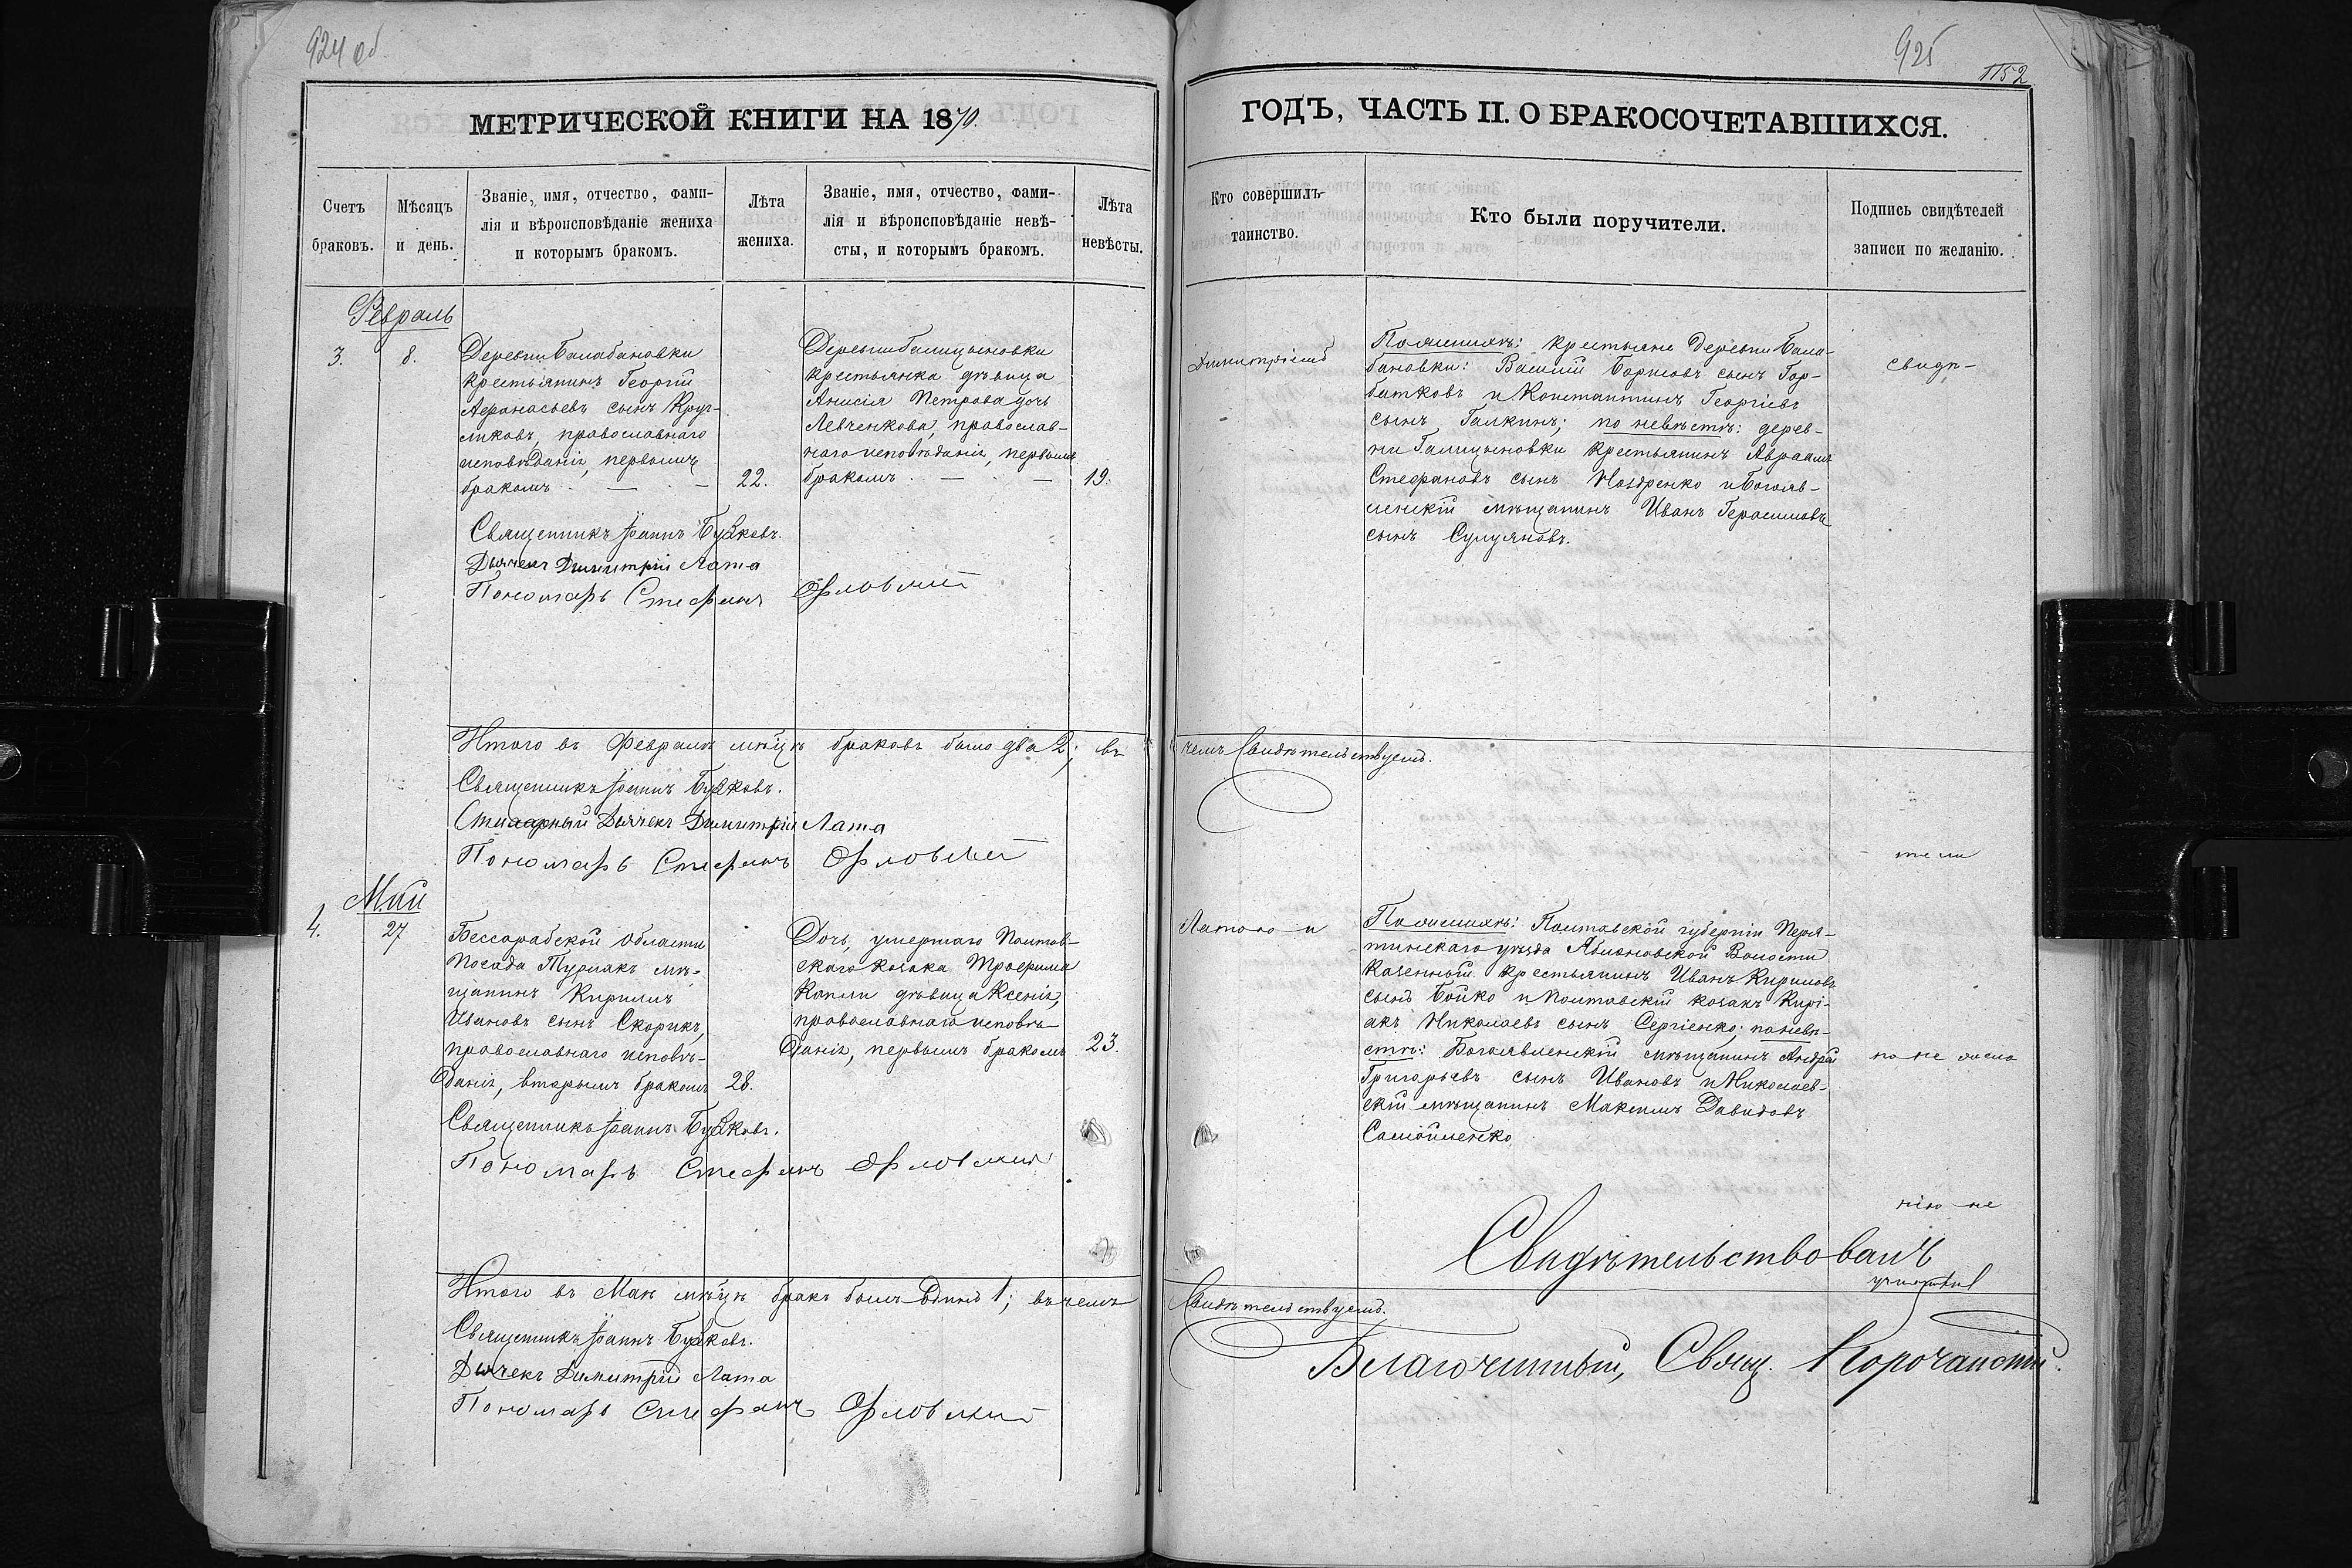 924 об
МЕТРИЧЕСКОЙ КНИГИ НА 1870.
Счетъ
браковъ.
Мѣсяцъ
и день.
Званіе, имя, отчество, фами-
лія и вѣроисповѣданіе жениха
и которымъ бракомъ.
Лѣта
жениха.
Званіе, имя, отчество, фами-
лія и вѣроисповѣданіе невѣ-
сты, и которымъ бракомъ.
Лѣта
невѣсты.
Февраль
3.
8.
Деревни Балабановки
крестьянинъ Георгій
Афанасьевъ сынъ Круг-
ликовъ, православнаго
исповѣданія, первымъ
бракомъ
22.
Деревни Галицыновки
крестьянка дѣвица
Анисія Петрова дочь
Левченкова, православ-
наго исповѣданія, первымъ
бракомъ
19.
Священникъ Іоаннъ
Дьячекъ Димитрій Лата
Пономарь Стефанъ Орловскій
Итого въ Февралѣ мѣсцѣ браковъ было два 2; въ
Священникъ Іоаннъ
Дьячекъ Димитрій Лата
Пономарь Стефанъ Орловскій
Май
4.
27
Бессарабской Области
Посада Турлакъ мѣ-
щанинъ Кириллъ
Ивановъ сынъ Скорикъ,
православнаго исповѣ-
данія, вторымъ бракомъ
28.
Дочь умершаго Полтав-
скаго козака Трофима
Капли дѣвица Ксенія,
православнаго исповѣ-
данія, первымъ бракомъ
23.
Священникъ Іоаннъ
Пономарь Стефанъ Орловскій
Итого въ Маѣ мѣсцѣ бракъ былъ одинъ 1; въ чемъ
Священникъ Іоаннъ
Дьячекъ Димитрій Лата
Пономарь Стефанъ Орловскій
925
1152
ГОДЪ, ЧАСТЬ II. О БРАКОСОЧЕТАВШИХСЯ.
Кто совершилъ
таинство.
Кто были поручители.
Подпись свидѣтелей
записи по желанію.
Димитріемъ
По женихѣ: крестьяне деревни Бала-
бановки: Василій Борисовъ сынъ Гор-
батковъ и Константинъ Георгіевъ
сынъ Галкинъ; по невѣстѣ: дерев-
ни Галицыновки крестьянинъ Авраамъ
Стефановъ сынъ Ноздренко и Богояв-
ленскій мѣщанинъ Иванъ Герасимовъ
сынъ Сулуяновъ.
свидѣ-
чемъ Свидѣтельствуемъ.
тели
Латою и
По женихѣ: Полтавской губерніи Перя-
тинскаго уѣзда Волости
казенный крестьянинъ Иванъ Кириловъ
сынъ Бойко и Полтавскій козакъ Кирі-
акъ Николаевъ сынъ Сергіенко; по невѣ-
стѣ: Богоявленскій мѣщанинъ Андрей
Григорьевъ сынъ Ивановъ и Николаев-
скій мѣщанинъ Максимъ Давидовъ
Самойленко
нію не
Свидѣтельствовалъ
Свидѣтельствуемъ.
Благочинный, Свящ. Корочанскій.